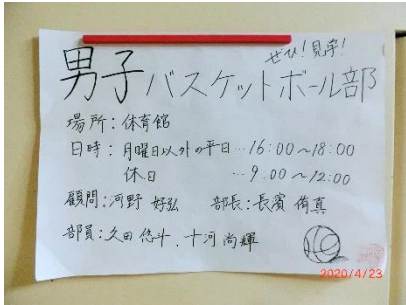 ぜひ!見学!
男子バスケットボール部
場所:体育館
日時:月曜日以外の平日…16:00〜18:00
休日…9:00〜12:00
顧問:河野 好弘 部長:長濱 侑真
部員:久田 悠斗、十河 尚輝
2020/4/23